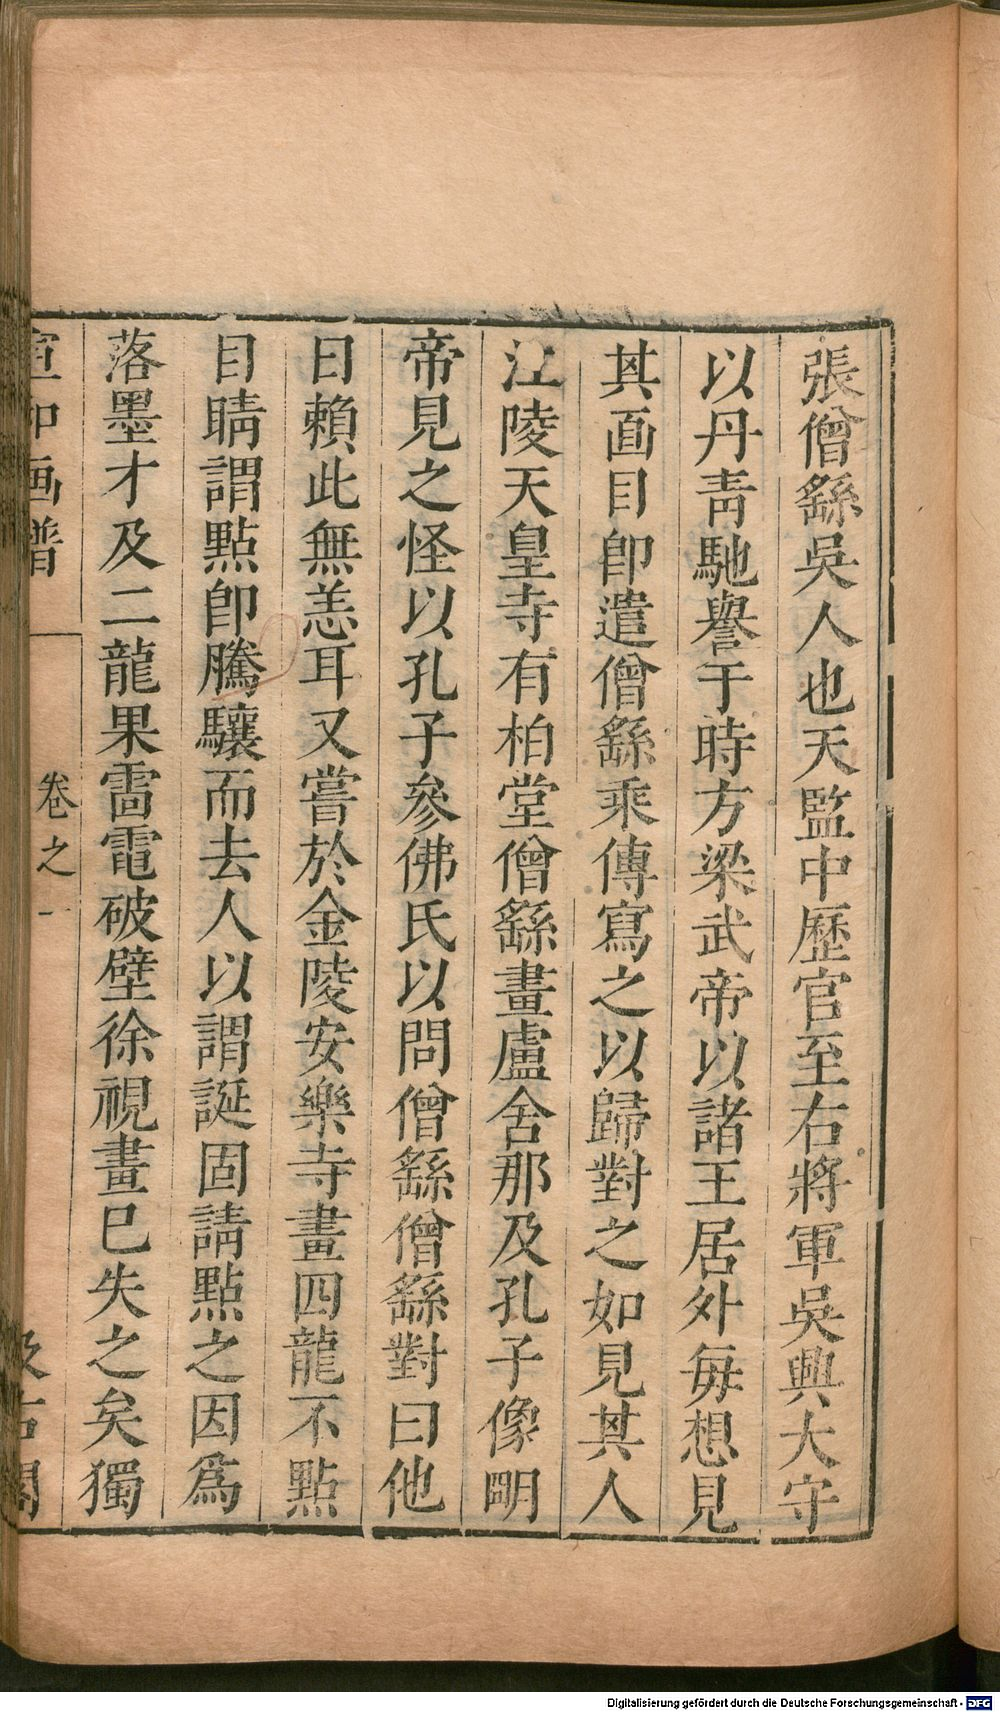 張僧繇吳人也天監中歷官至右將軍吳興大守
以丹靑馳譽于時方梁武帝以諸王居外每想見
其面目卽遣僧繇乘傳寫之以歸對之如見其人
江陵天皇寺有柏堂僧繇畫盧舍那及孔子像明
帝見之怪以孔子參佛氏以問僧繇僧繇對曰他
日賴此無恙耳又嘗於金陵安樂寺畫四龍不點
目睛謂點卽騰驤而去人以謂誕固請點之因爲
落墨才及二龍果雷電破壁徐視畫已失之矣獨
宣和画譜
卷之一
汲古閣
Digitalisierung gefördert durch die Deutsche Forschungsgemeinschaft - DFG